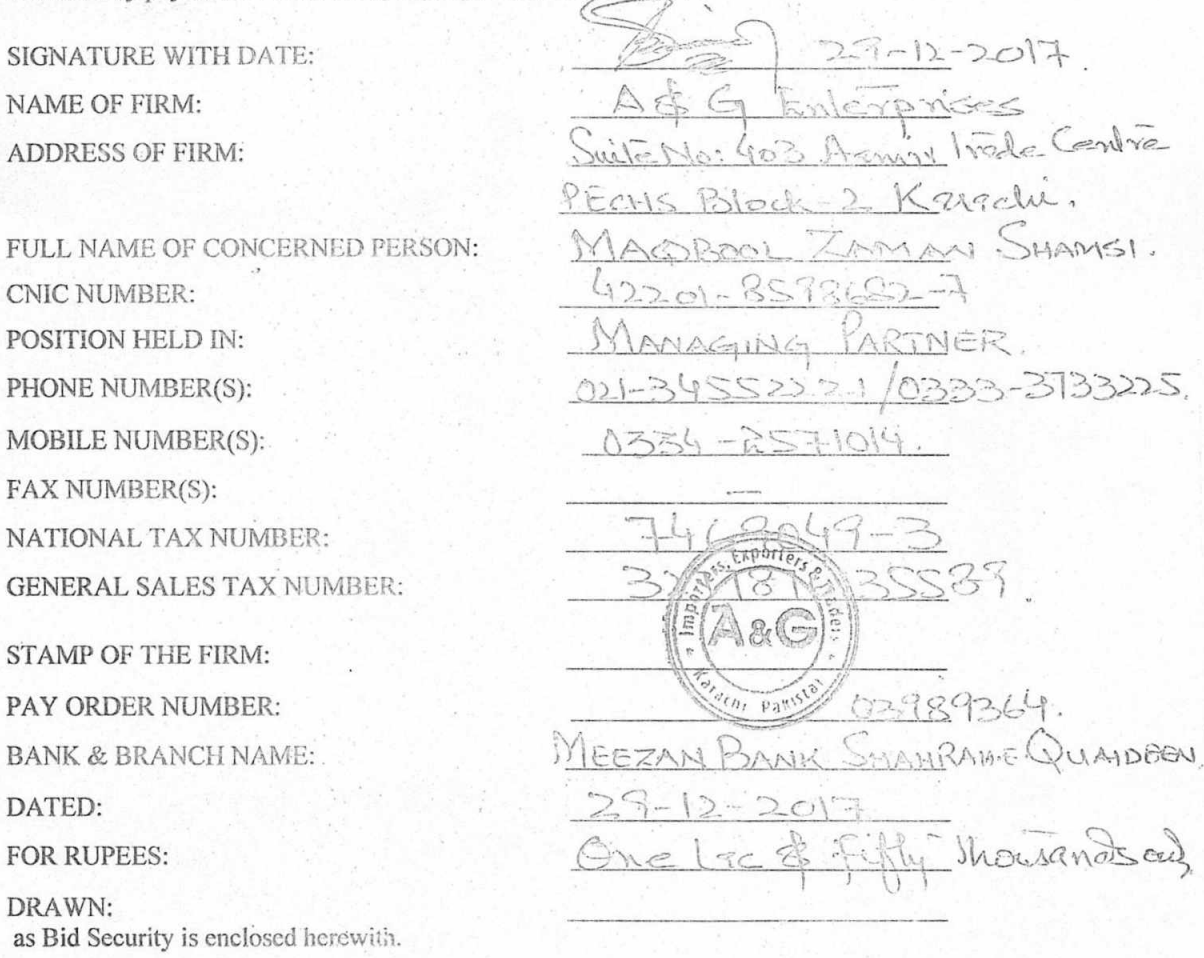 SIGNATURE WITH DATE: 29-12-2017.
NAME OF FIRM: A & G Enterprises
ADDRESS OF FIRM: Suite No: 403 Trade Centre
PECHS Block-2 Karachi.
FULL NAME OF CONCERNED PERSON: MAQBOOL ZAMAN SHAMSI.
CNIC NUMBER: 42201-8598682-7
POSITION HELD IN: MANAGING PARTNER.
PHONE NUMBER(S): 021-34552221/0333-3733225.
MOBILE NUMBER(S): 0334-2571014.
FAX NUMBER(S): —
NATIONAL TAX NUMBER: 7468049-3
GENERAL SALES TAX NUMBER:
Importers, Exporters & Traders
A&G
Karachi Pakistan
STAMP OF THE FIRM:
PAY ORDER NUMBER: 03989364.
BANK & BRANCH NAME: MEEZAN BANK SHAHRAHE QUAIDEEN.
DATED: 29-12-2017
FOR RUPEES: One Lac & Fifty Thousands only
DRAWN:
as Bid Security is enclosed herewith.